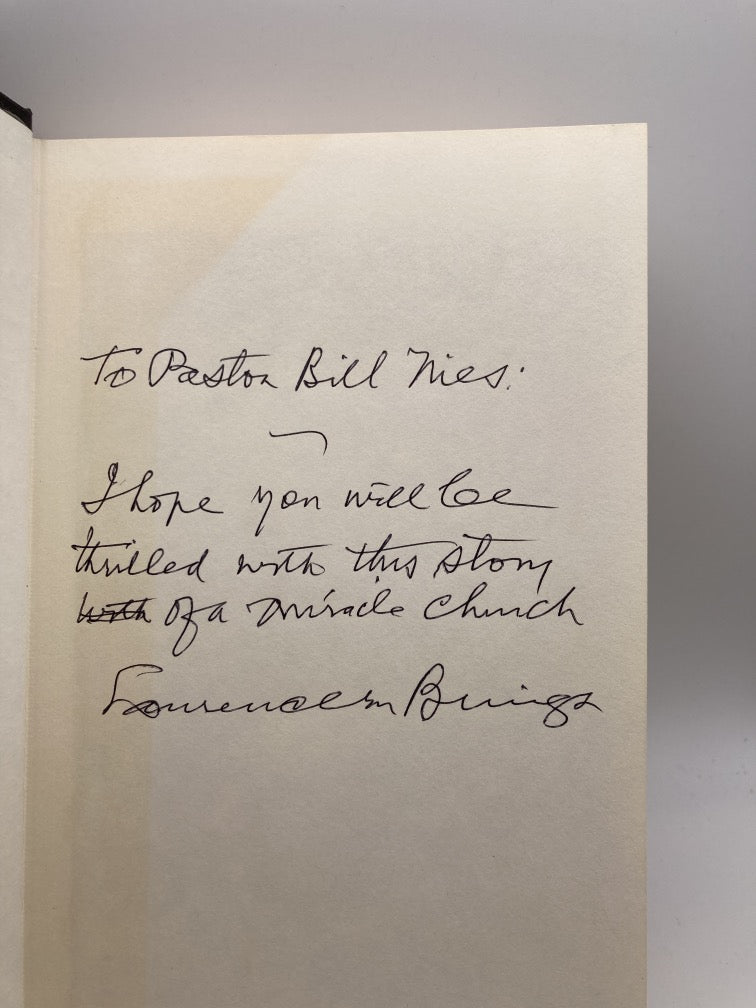 To Pastor Bill Nies:
I hope you will be
thrilled with this story
with of a miracle church
Lawrence M Brings